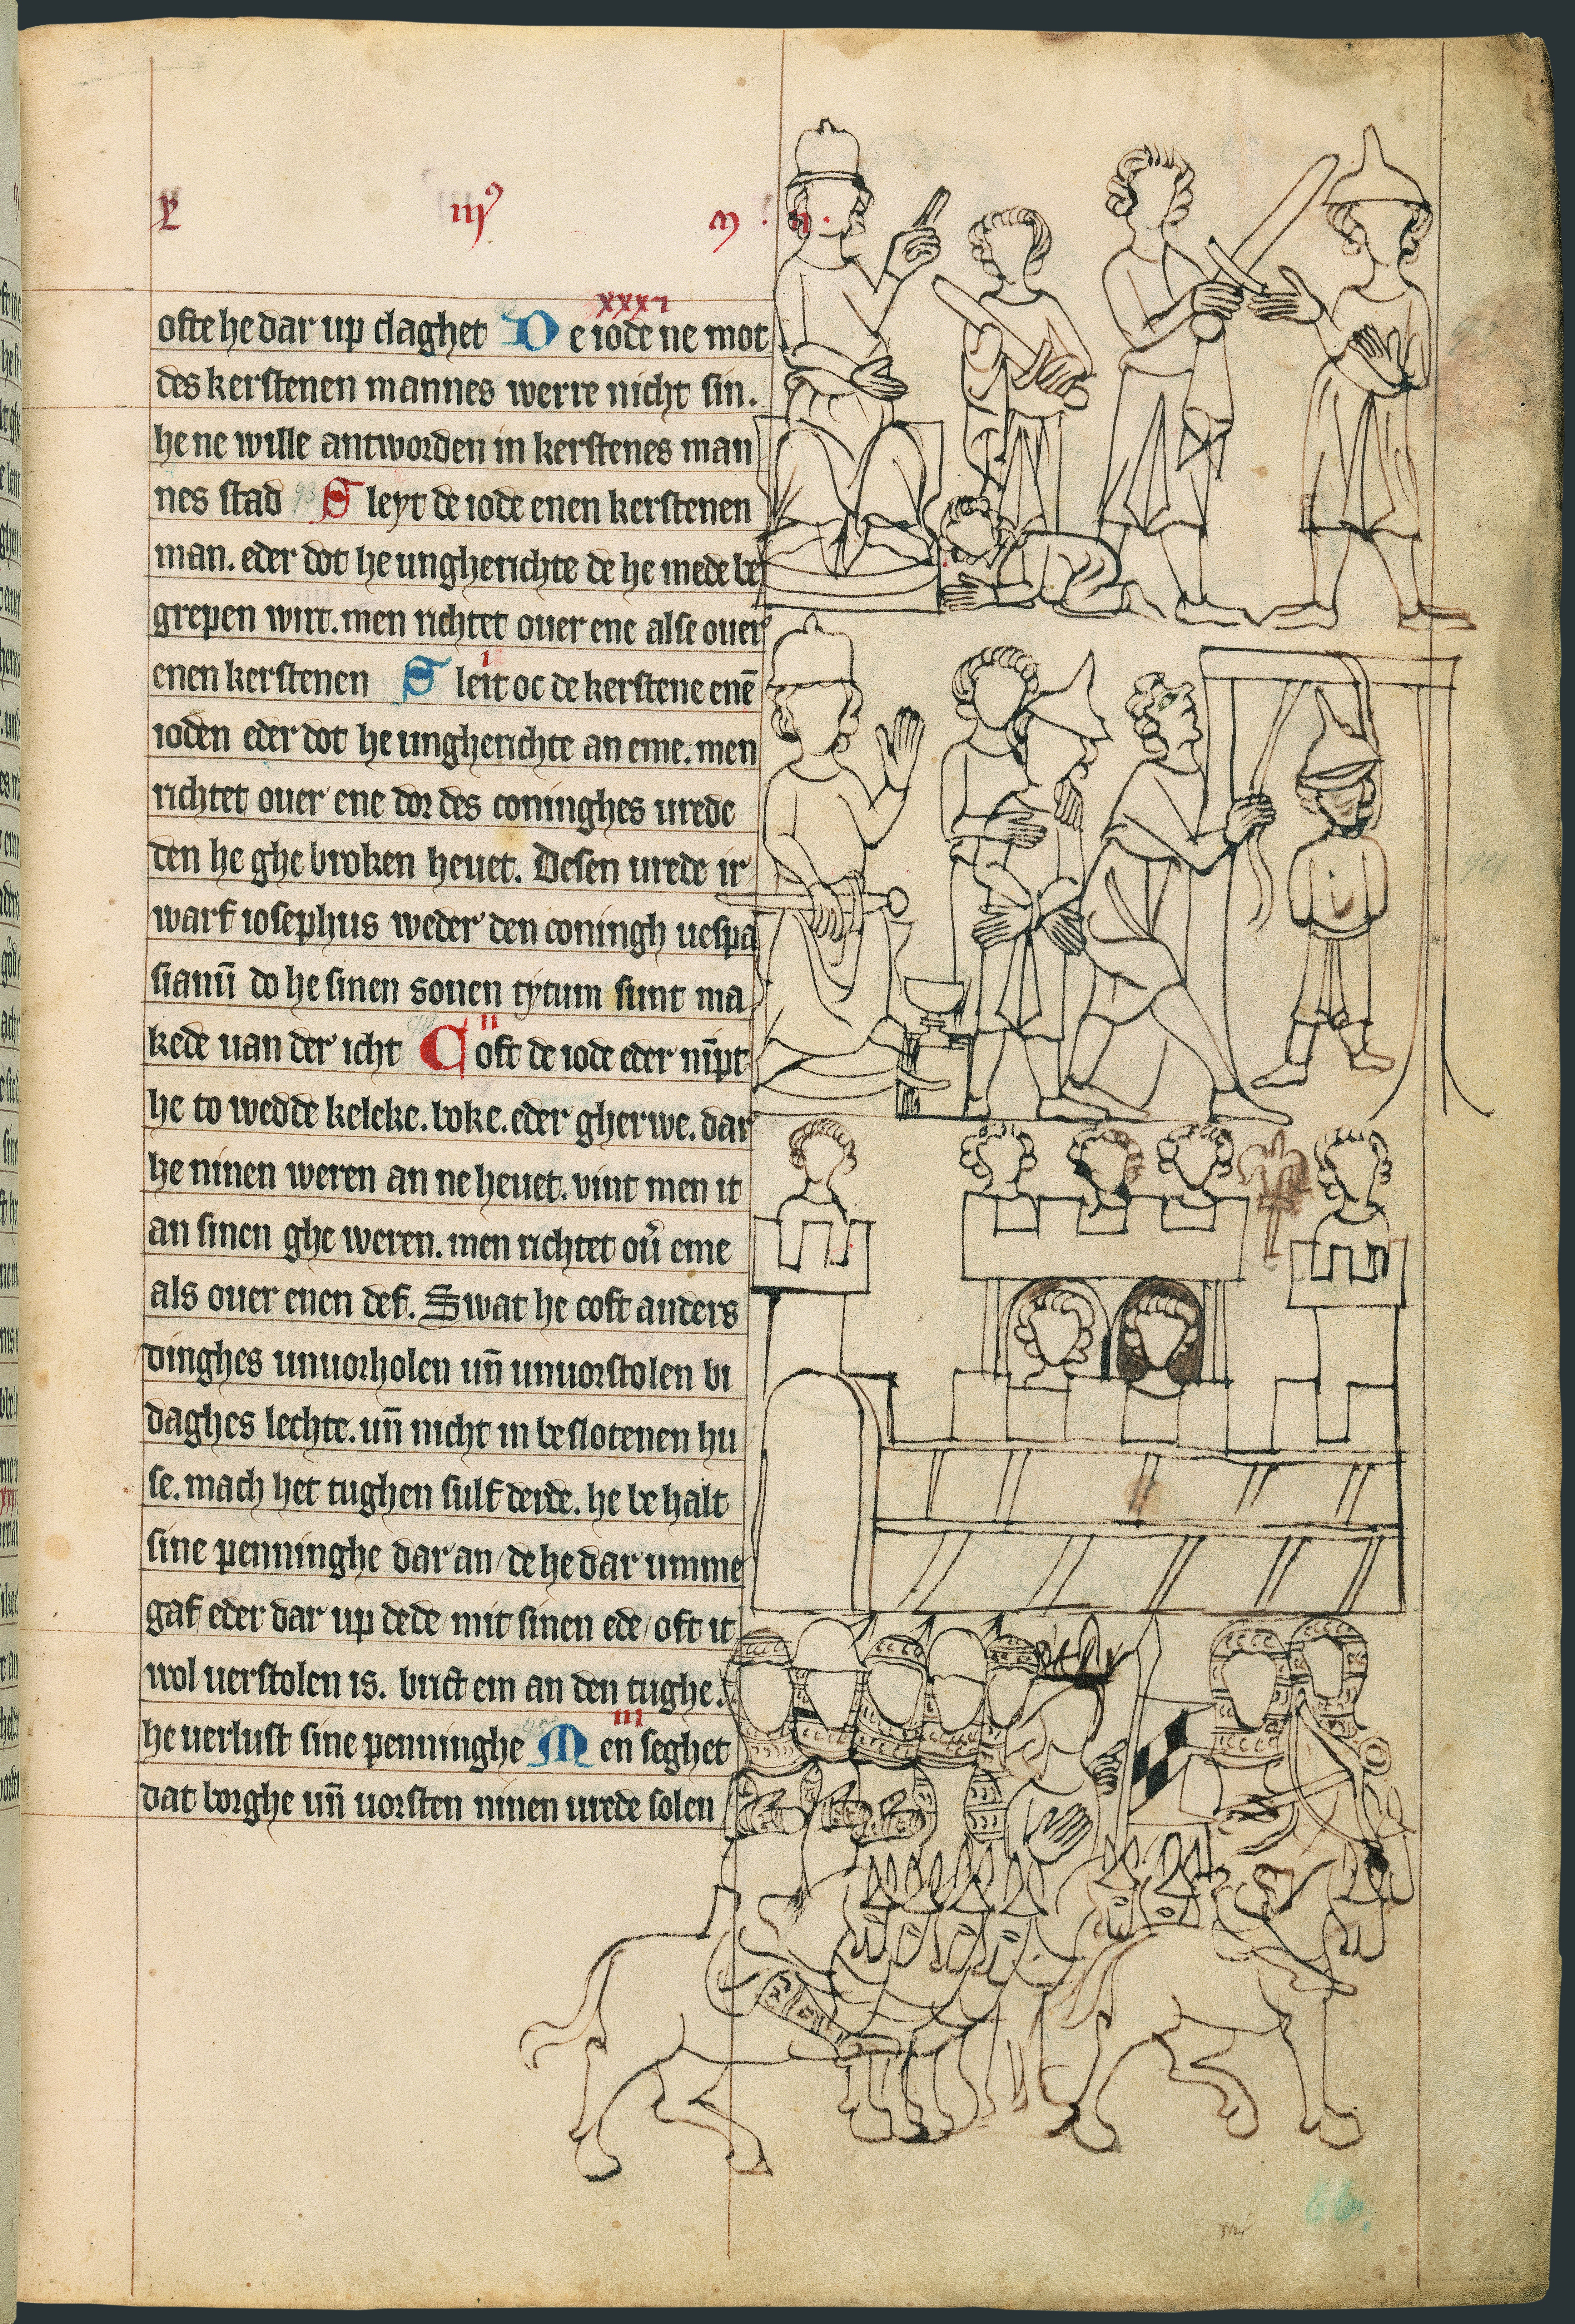 iij⁹
ofte he dar up claghet De iode ne mot
xxxi
des kerstenen mannes werre nicht sin.
he ne wille antworden in kerstenes man
nes stad Sleyt de iode enen kerstenen
man. eder dot he ungherichte de he mede be
grepen wirt. men richtet ouer ene alse ouer
enen kerstenen Sleit oc de kerstene enē
i
ioden eder dot he ungherichte an eme. men
richtet ouer ene dor des coninghes urede
den he ghe broken heuet. Desen urede ir
warf iosephus weder den coningh uespa
sianū do he sinen sonen tytum sunt ma
kede uan der icht Coft de iode eder nīpt
ii
he to wedde keleke. boke. eder gherwe. dar
he ninen weren an ne heuet. vint men it
an sinen ghe weren. men richtet ou̾ eme
als ouer enen def. Swat he coft anders
dinghes unuorholen un̄ unuorstolen bi
daghes lechte. un̄ nicht in be slotenen hu
se. mach het tughen sulf derde. he be halt
sine penninghe dar an / de he dar umme
gaf eder dar up dede mit sinen ede / oft it
wol uerstolen is. brict em an den tughe.
he uerlust sine penninghe Men seghet
iii
dat borghe un̄ uorsten ninen urede solen